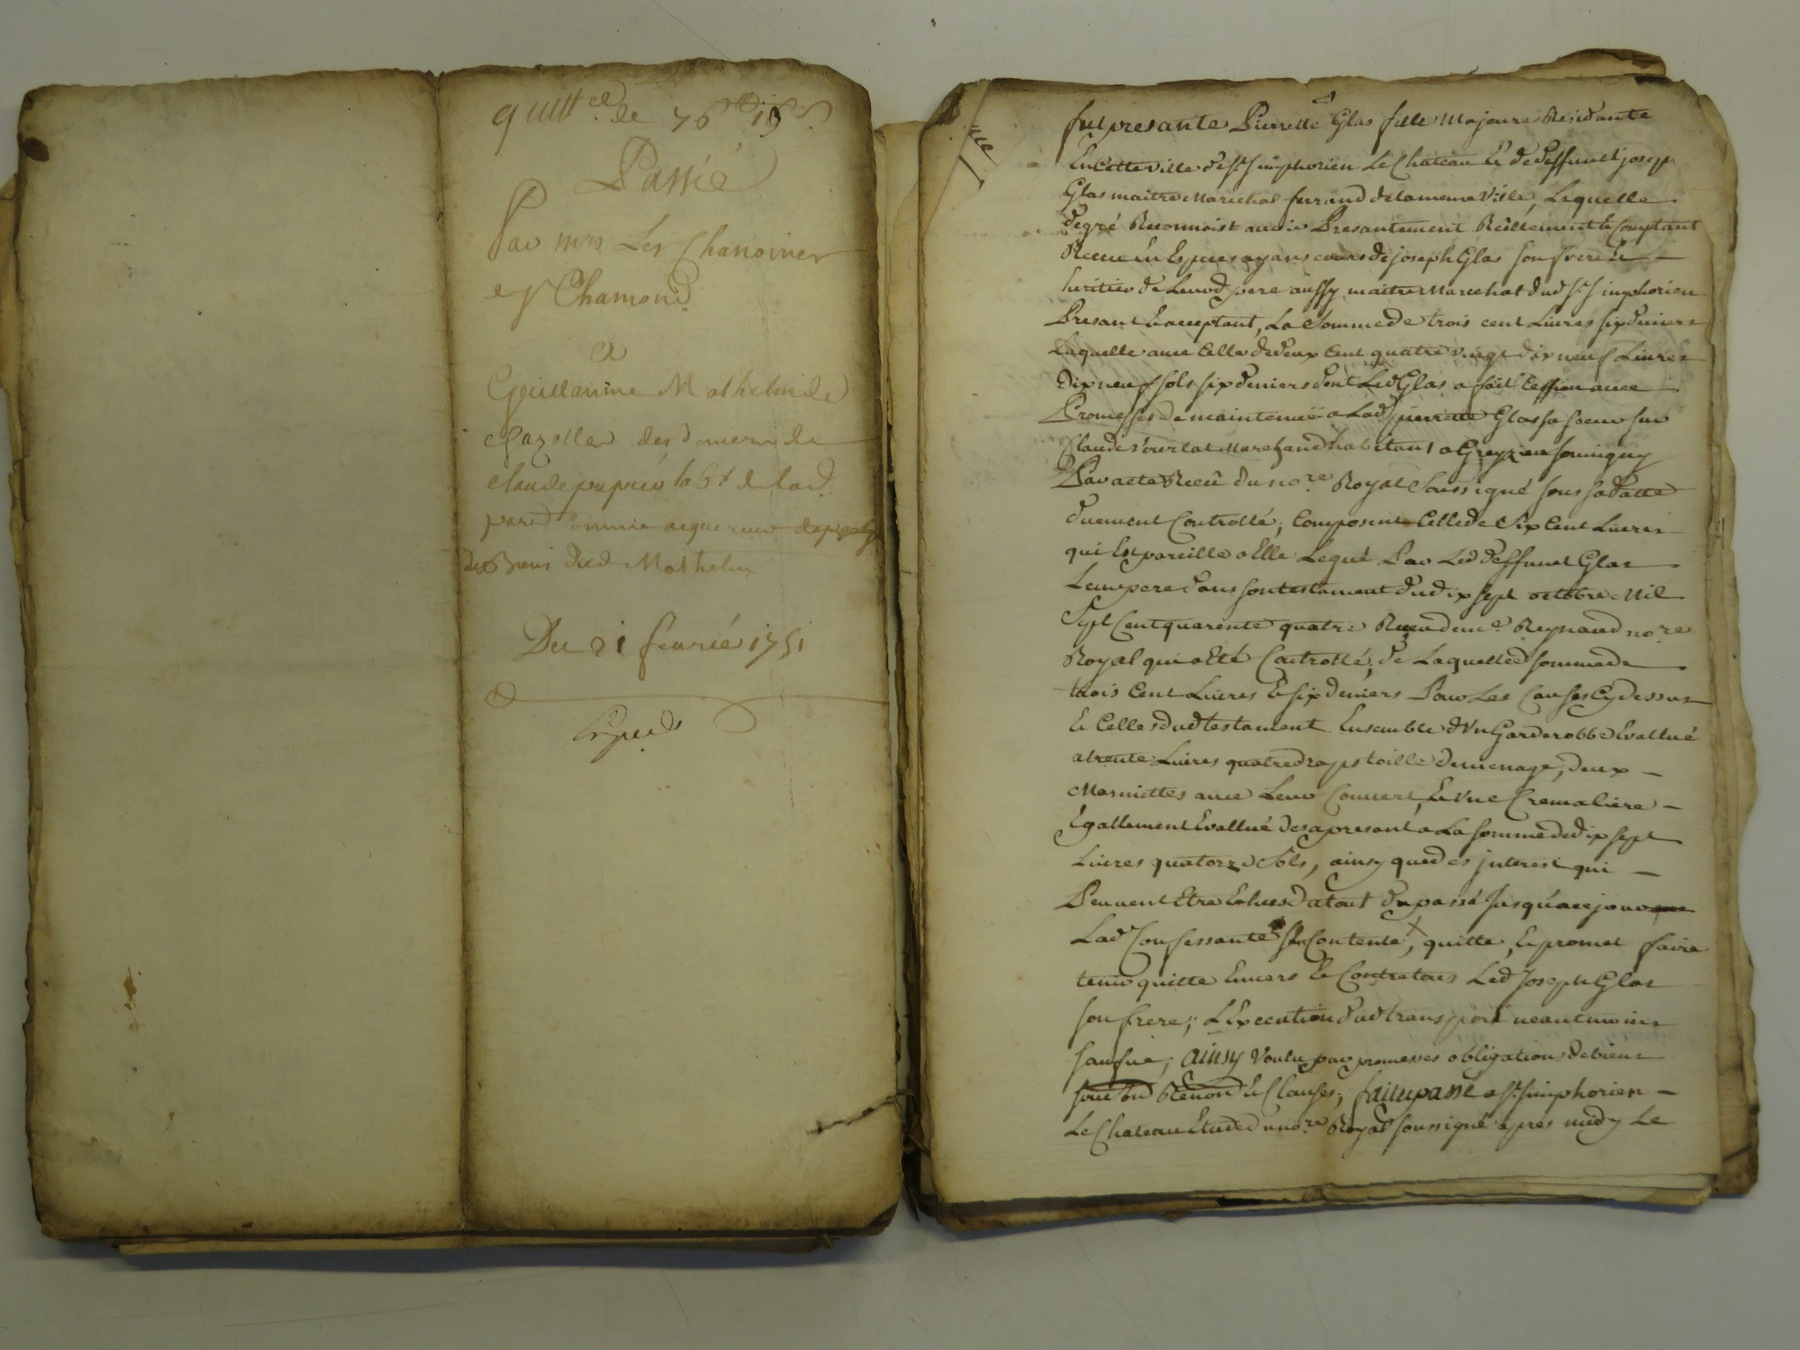 quitt.ce de 76 lt 19 s.
Passée
Par mrs Les Chanoines
de st Chamond
a
Guillaume Mathelin de
chazolla des deniers de
claude papier labt de lad.
paro. comme acquereur
des Biens dud Mathelin
Du 21 feurié 1751
Exped
fut presante Pierrette Glas fille Majeure Residante
En Cette ville de St Simphorien Le Chateau Et de deffunct joseph
Glas maitre Marechal ferrand de la meme Ville, Laquelle
de gré Reconnoist avoir Presantement Réellement Et Comptant
Receu En Especes ayans cours de joseph Glas son frere Et
heritier de Leurd pere aussy maitre Marechal dud St Simphorien
Present Et acceptant, La Somme de trois cent Livres six deniers
Laquelle avec Celle de deux Cent quatre vingt dix neuf Livres
dix neuf sols six deniers dont Led Glas a fait Cession avec
Promesses de maintenüe a Lad pierrette Glas sa soeur sur
Claude Marchand habitant a Grezieu Souvigny
Par acte Receu du no.re Royal Soussigné sous sa datte
duement Controllé, Composent Celle de Six Cent Livres
qui Est pareille a Elle Legué Par Led deffunct Glas
Leur pere dans son testament du dix sept octobre Mil
Sept Cent quarente quatre Receu de me Reynaud no.re
Royal qui a Eté Controllé, de Laquelled somme de
trois Cent Livres Et six deniers Pour Les Causes Cy dessus
Et Celles dud testament Ensemble d'Un Garderobbe Evallué
a trente Livres quatre draps toille de menage, deux
Marmittes avec Leur Couvert, Et Une Cremaliere
Egallement Evallué des a presant a La somme de dix sept
Livres quatorze Sols, ainsy que des jnterest qui
Peuvent Etre Echus du tout du passé Jusqu'a ce jour
Lad Confessante Se Contente, quitte, Et promet faire
tenir quitte Envers Et Contre tous Led Joseph Glas
son frere; L'Execution dud transport neantmoins
sauf; ainsy Voulu par promesses obligations de biens
Renon Et Clauses; fait Et passé a St Simphorien
Le Chateau Etude du no.re Royal soussigné apres midy Le